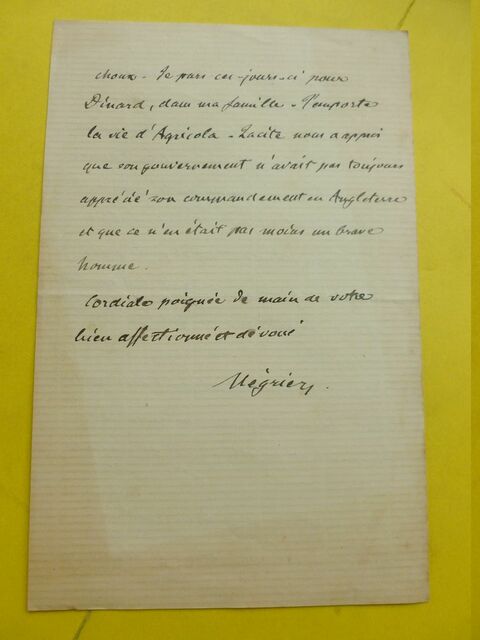 choux - Je pars ces jours-ci pour
Dinard, dans ma famille - J'emporte
la vie d'Agricola - Tacite nous a appris
que son gouvernement n'avait pas toujours
apprécié son commandement en Angleterre
et que ce n'en était pas moins un brave
homme.
Cordiale poignée de main de votre
bien affectionné et dévoué
Négrier.